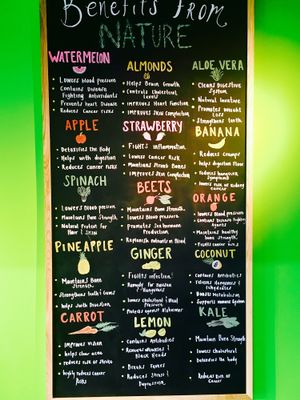 Benefits From
NATURE
WATERMELON
Lowers blood pressure
Contains Disease
Fighting Antioxidants
Prevents heart Disease
Reduces Cancer risks
APPLE
Detoxifies the Body
Helps with digestion
Reduces Cancer risks
SPINACH
Lowers Blood pressure
Maintains Bone Strength
Natural Protein for
Hair & Skin
PINEAPPLE
Maintains Bone
Strength
Strengthens teeth & Gums
helps with Digestion
CARROT
Improves vision
helps slow aging
reduces risk of stroke
highly reduces cancer
Risks
ALMONDS
Helps Brain Growth
Controls Cholesterol
Levels
Improves Heart Function
Improves Skin Complection
STRAWBERRY
Fights inflammation
Lowers Cancer Risk
Maintains Strong Bones
Improves Skin Complection
BEETS
Maintains Bone Strength
lowers blood pressure
Promotes Sex hormone
Production
Replenish minerals in Blood
GINGER
Fights infection
Remedy for nausea
lowers cholesterol & blood
Pressure
Protects against Alzheimers
LEMON
Contains Antibiotics
Removes Wrinkles &
Black Heads
Breaks Fevers
Reduces Stress &
Depression
ALOE VERA
Cleans Digestive
System
Natural laxative
Promotes weight
Loss
Strengthens teeth
BANANA
Reduces cramps
helps digestion flow
Reduces hangover
Symptoms
lowers risk of kidney
cancer
ORANGE
lowers Blood pressure
contains Disease fighting
Agents
Maintains healthy
bone strength
Fights cancer
COCONUT
contains Antibiotics
Boosts Metabolism
Supports immune System
KALE
Maintains Bone
Strength
Lowers cholesterol
Detoxifies the body
Reduces Risk of
Cancer